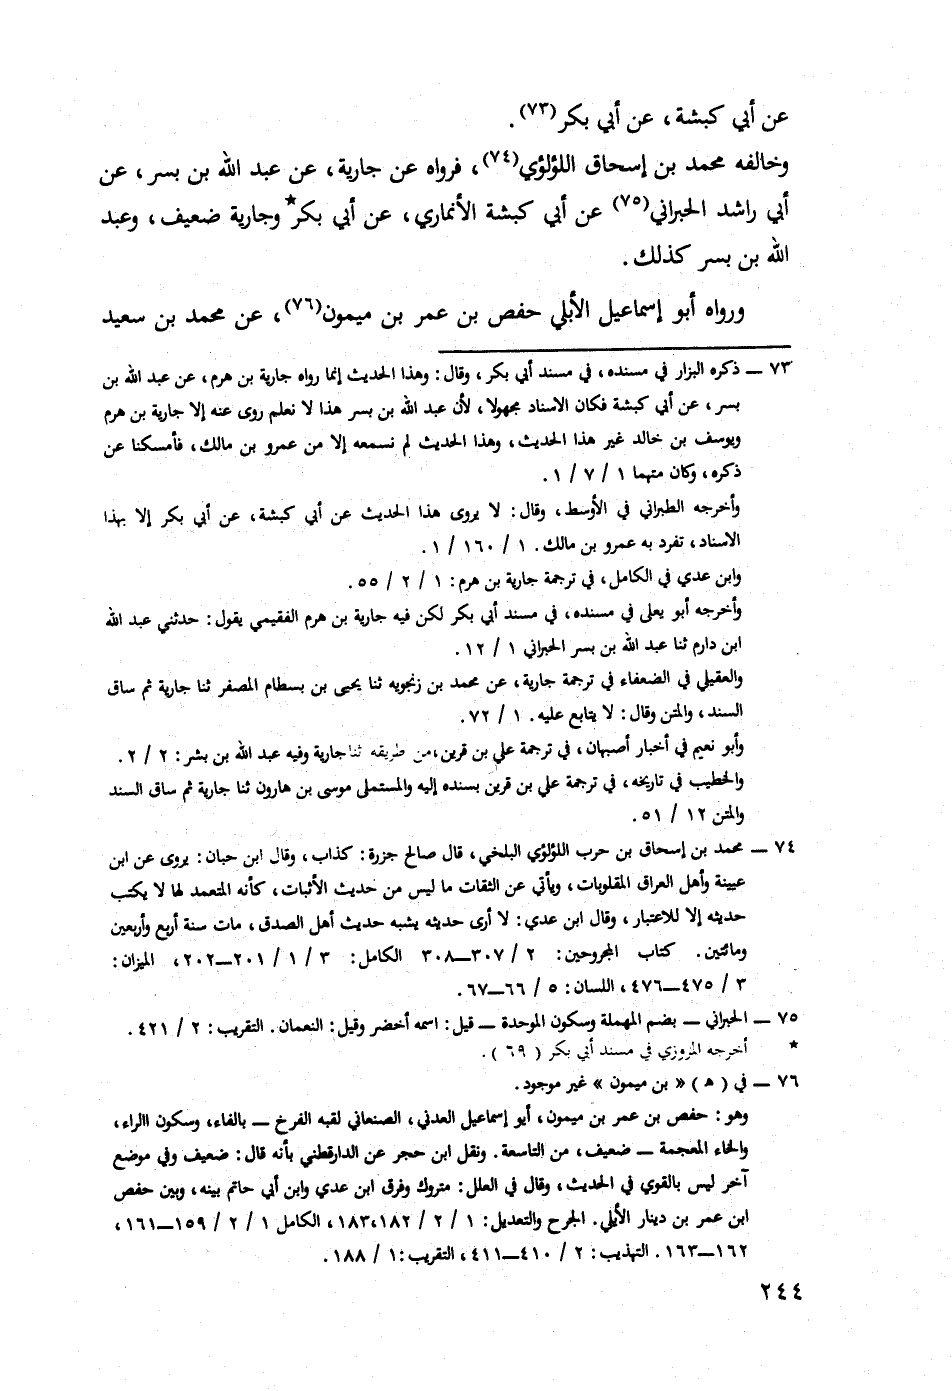 عن أبي كبشة، عن أبي بكر(٧٣).
وخالفه محمد بن إسحاق اللؤلؤي(٧٤)، فرواه عن جارية، عن عبد الله بن بسر، عن
أبي راشد الحبراني(٧٥) عن أبي كبشة الأنماري، عن أبي بكر* وجارية ضعيف، وعبد
الله بن بسر كذلك.
ورواه أبو إسماعيل الأبلي حفص بن عمر بن ميمون(٧٦)، عن محمد بن سعيد
٧٣ ـ ذكره البزار في مسنده، في مسند أبي بكر، وقال: وهذا الحديث إنما رواه جارية بن هرم، عن عبد الله بن
بسر، عن أبي كبشة فكان الاسناد مجهولا، لأن عبد الله بن بسر هذا لا نعلم روى عنه إلا جارية بن هرم
ويوسف بن خالد غير هذا الحديث، وهذا الحديث لم نسمعه إلا من عمرو بن مالك، فأمسكنا عن
ذكره، وكان متهما ١ / ٧ / ١.
وأخرجه الطبراني في الأوسط، وقال: لا يروى هذا الحديث عن أبي كبشة، عن أبي بكر إلا بهذا
الاسناد، تفرد به عمرو بن مالك. ١ / ١٦٠ / ١.
وابن عدي في الكامل، في ترجمة جارية بن هرم: ١ / ٢ / ٥٥.
وأخرجه أبو يعلى في مسنده، في مسند أبي بكر لكن فيه جارية بن هرم الفقيمي يقول: حدثني عبد الله
ابن دارم ثنا عبد الله بن بسر الحبراني ١ / ١٢.
والعقيلي في الضعفاء في ترجمة جارية، عن محمد بن زنجويه ثنا يحيى بن بسطام المصفر ثنا جارية ثم ساق
السند، والمتن وقال: لا يتابع عليه. ١ / ٧٢.
وأبو نعيم في أخبار أصبهان، في ترجمة علي بن قرين، من طريقه ثنا جارية وفيه عبد الله بن بشر: ٢ / ٢.
والخطيب في تاريخه، في ترجمة علي بن قرين بسنده إليه والمستملى موسى بن هارون ثنا جارية ثم ساق السند
والمتن ١٢ / ٥١.
٧٤ ـ محمد بن إسحاق بن حرب اللؤلؤي البلخي، قال صالح جزرة: كذاب، وقال ابن حبان: يروى عن ابن
عيينة وأهل العراق المقلوبات، ويأتي عن الثقات ما ليس من حديث الأثبات، كأنه المتعمد لها لا يكتب
حديثه إلا للاعتبار، وقال ابن عدي: لا أرى حديثه يشبه حديث أهل الصدق، مات سنة أربع وأربعين
ومائتين. كتاب المجروحين: ٢ / ٣٠٧ـ٣٠٨ الكامل: ٣ / ١ / ٢٠١ـ٢٠٢، الميزان:
٣ / ٤٧٥ـ٤٧٦، اللسان: ٥ / ٦٦ـ٦٧.
٧٥ ـ الحبراني ـ بضم المهملة وسكون الموحدة ـ قيل: اسمه أخضر وقيل: النعمان. التقريب: ٢ / ٤٢١.
* أخرجه المروزي في مسند أبي بكر ( ٦٩ ).
٧٦ ـ في ( هـ ) « بن ميمون » غير موجود.
وهو: حفص بن عمر بن ميمون، أبو إسماعيل العدني، الصنعاني لقبه الفرخ ـ بالفاء، وسكون االراء،
والخاء المعجمة ـ ضعيف، من التاسعة. ونقل ابن حجر عن الدارقطني بأنه قال: ضعيف وفي موضع
آخر ليس بالقوي في الحديث، وقال في العلل: متروك وفرق ابن عدي وابن أبي حاتم بينه، وبين حفص
ابن عمر بن دينار الأبلي. الجرح والتعديل: ١ / ٢ / ١٨٢،١٨٣، الكامل ١ / ٢ / ١٥٩ـ١٦١،
١٦٢ـ١٦٣. التهذيب: ٢ / ٤١٠ـ٤١١، التقريب: ١ / ١٨٨.
٢٤٤